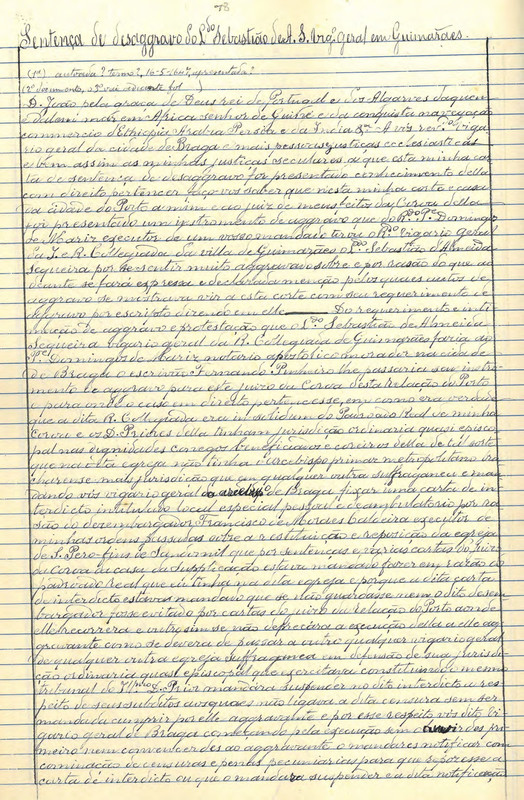 78
Sentença de desaggravo do L.do Sebastião de A. S. vig.º geral em Guimarães.
(1º) autuada? termo?, 10-5-1647, apresentada?
(2º documento, o 1º vai adiante fol )
D. João pela graça de Deus rei de Portugal e dos Algarves daquem
e dalem mar em Africa senhor de Guiné e da conquista navegação
commercio d'Ethiopia Arabia Persia e da India &.ª A vós rev.º viga
rio geral da cidade de Braga e mais pessoas justiças ecclesiasticas
e bem assim as minhas justiças seculares a que esta minha car
ta de sentença de desaggravo for presentado e conhecimento della
com direito pertencer faço vos saber que nesta minha corte e casa
da cidade do Porto a mim e ao juiz de meus feitos da Coroa della
foi presentado um instrumento de aggravo que do R.do P.e Domingos
de Mariz executor de um vosso mandado tirou o R.do vigario geral
da I. e R. Collegiada da villa de Guimarães o L.do Sebastião d'Almeida
Sequeira por se sentir muito aggravado sobre e por rasão do que ao
deante se fará expressa e declarada menção pelos quaes autos de
aggravo se mostrava vir a esta corte com seu requerimento de
aggravo por escripto dizendo em elle ——— Do requerimento e inti
mação de aggravo e protestação que o L.do Sebastião de Almeida
Sequeira vigario geral da R. Collegiada de Guimarães fazia ao
P.e Domingos de Mariz, notario apostolico morador na cidade
de Braga o escrivão Fernando Pinheiro lhe passaria seu instru
mento de aggravo para este juizo da Coroa desta Relação do Porto
e para onde o caso em direito pertencesse, em como era verdade
que a dita R. Collegiada era in solidum do Padroado Real de minha
Coroa e os D. Priores della tinham jurisdição ordinaria quasi episco
pal nas dignidades conegos beneficiados e coreiros della de tal sorte
que na dita egreja não tinha o arcebispo primaz metropolitano bra
charense mais jurisdição que em qualquer outra suffraganea e man
dando vós vigario geral de Braga fixar uma carta de in
terdicto intitulado local especial pessoal e deambulatorio por ra
são do desembargador Francisco de Moraes executor de
minhas ordens passadas sobre a restituição e reposição da egreja
de S. Pero-fins de que por sentenças e varias cartas do juizo
da Coroa da casa da Supplicação estava mandado fazer em razão do
padroado real que eu tinha na dita egreja e porque a dita carta
de interdicto estava mandado que se não guardasse nem o dito desem
bargador fosse evitado por cartas do juizo da relação do Porto aonde
elle recorrera e outrosim se não deprecára a execução della a elle ag
gravante como se devera de passar a outro qualquer vigario geral
de qualquer outra egreja suffraganea em defensão de sua jurisdi
ção ordinaria quasi episcopal que exercitava constituindo o mesmo
tribunal de D. Prior mandára suspender no dito interdicto a res
peito de seus subditos aos quaes não ligava a dita censura sem ser
mandada cumprir por elle aggravante e por esse respeito vós dito vi
gario geral de Braga começando pela execução sem ouvirdes pri
meiro nem convencerdes ao aggravante o mandares notificar com
cominação de censuras e penas pecuniarias para que repozesse a
carta de interdicto ou que o mandara suspender e a dita notificação